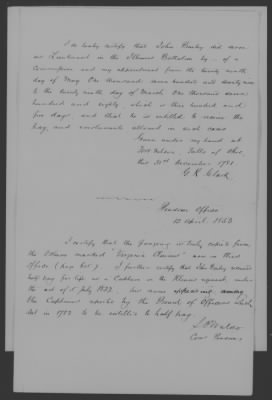 I do hereby certify that John Bailey did serve
as Lieutenant in the Illinois Battalion by of a
Commission and my appointment from the twenty ninth
day of May One thousand seven hundred and seventy nine
to the twenty ninth day of March One thousand seven
hundred and eighty which is three hundred and
five days, and that he is entitled to receive the
pay, and emoluments allowed in such cases
Given under my hand at
Fort Nelson. Falls of Ohio,
this 31st December 1781
G. R. Clark
Pension Office
12 April 1853
I certify that the foregoing is truly copied from
the volume marked "Virginia Claims" now in this
office (page ). I further certify that John Bailey received
half pay for life as a Captain in the Illinois regiment, under
the act of 5 July 1832. his name appearing among
the Captains reported by the Board of Officers which
sat in 1782 to be entitled to half pay.
Waldo
Com Pensions